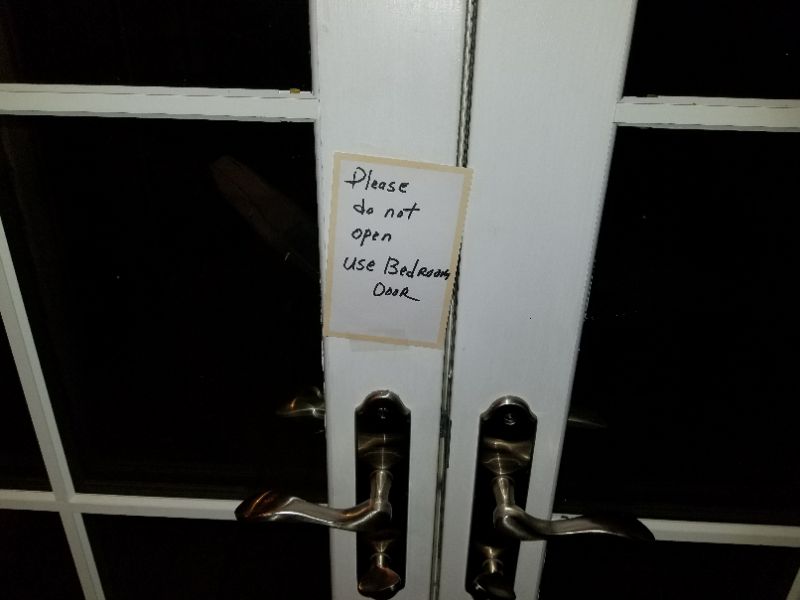 Please
do not
open
use Bedroom
Door